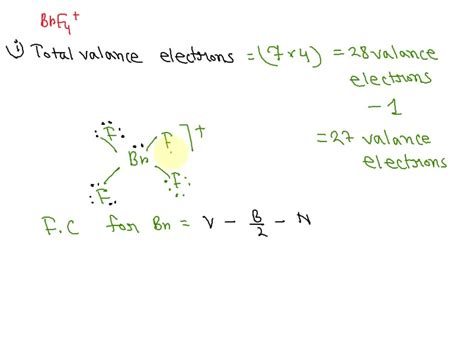 BrF4+
i) Total valance electrons = (7×4) = 28 valance
electrons
- 1
= 27 valance
electrons
F F ] +
Br
F F
F.C for Br = V - B/2 - N